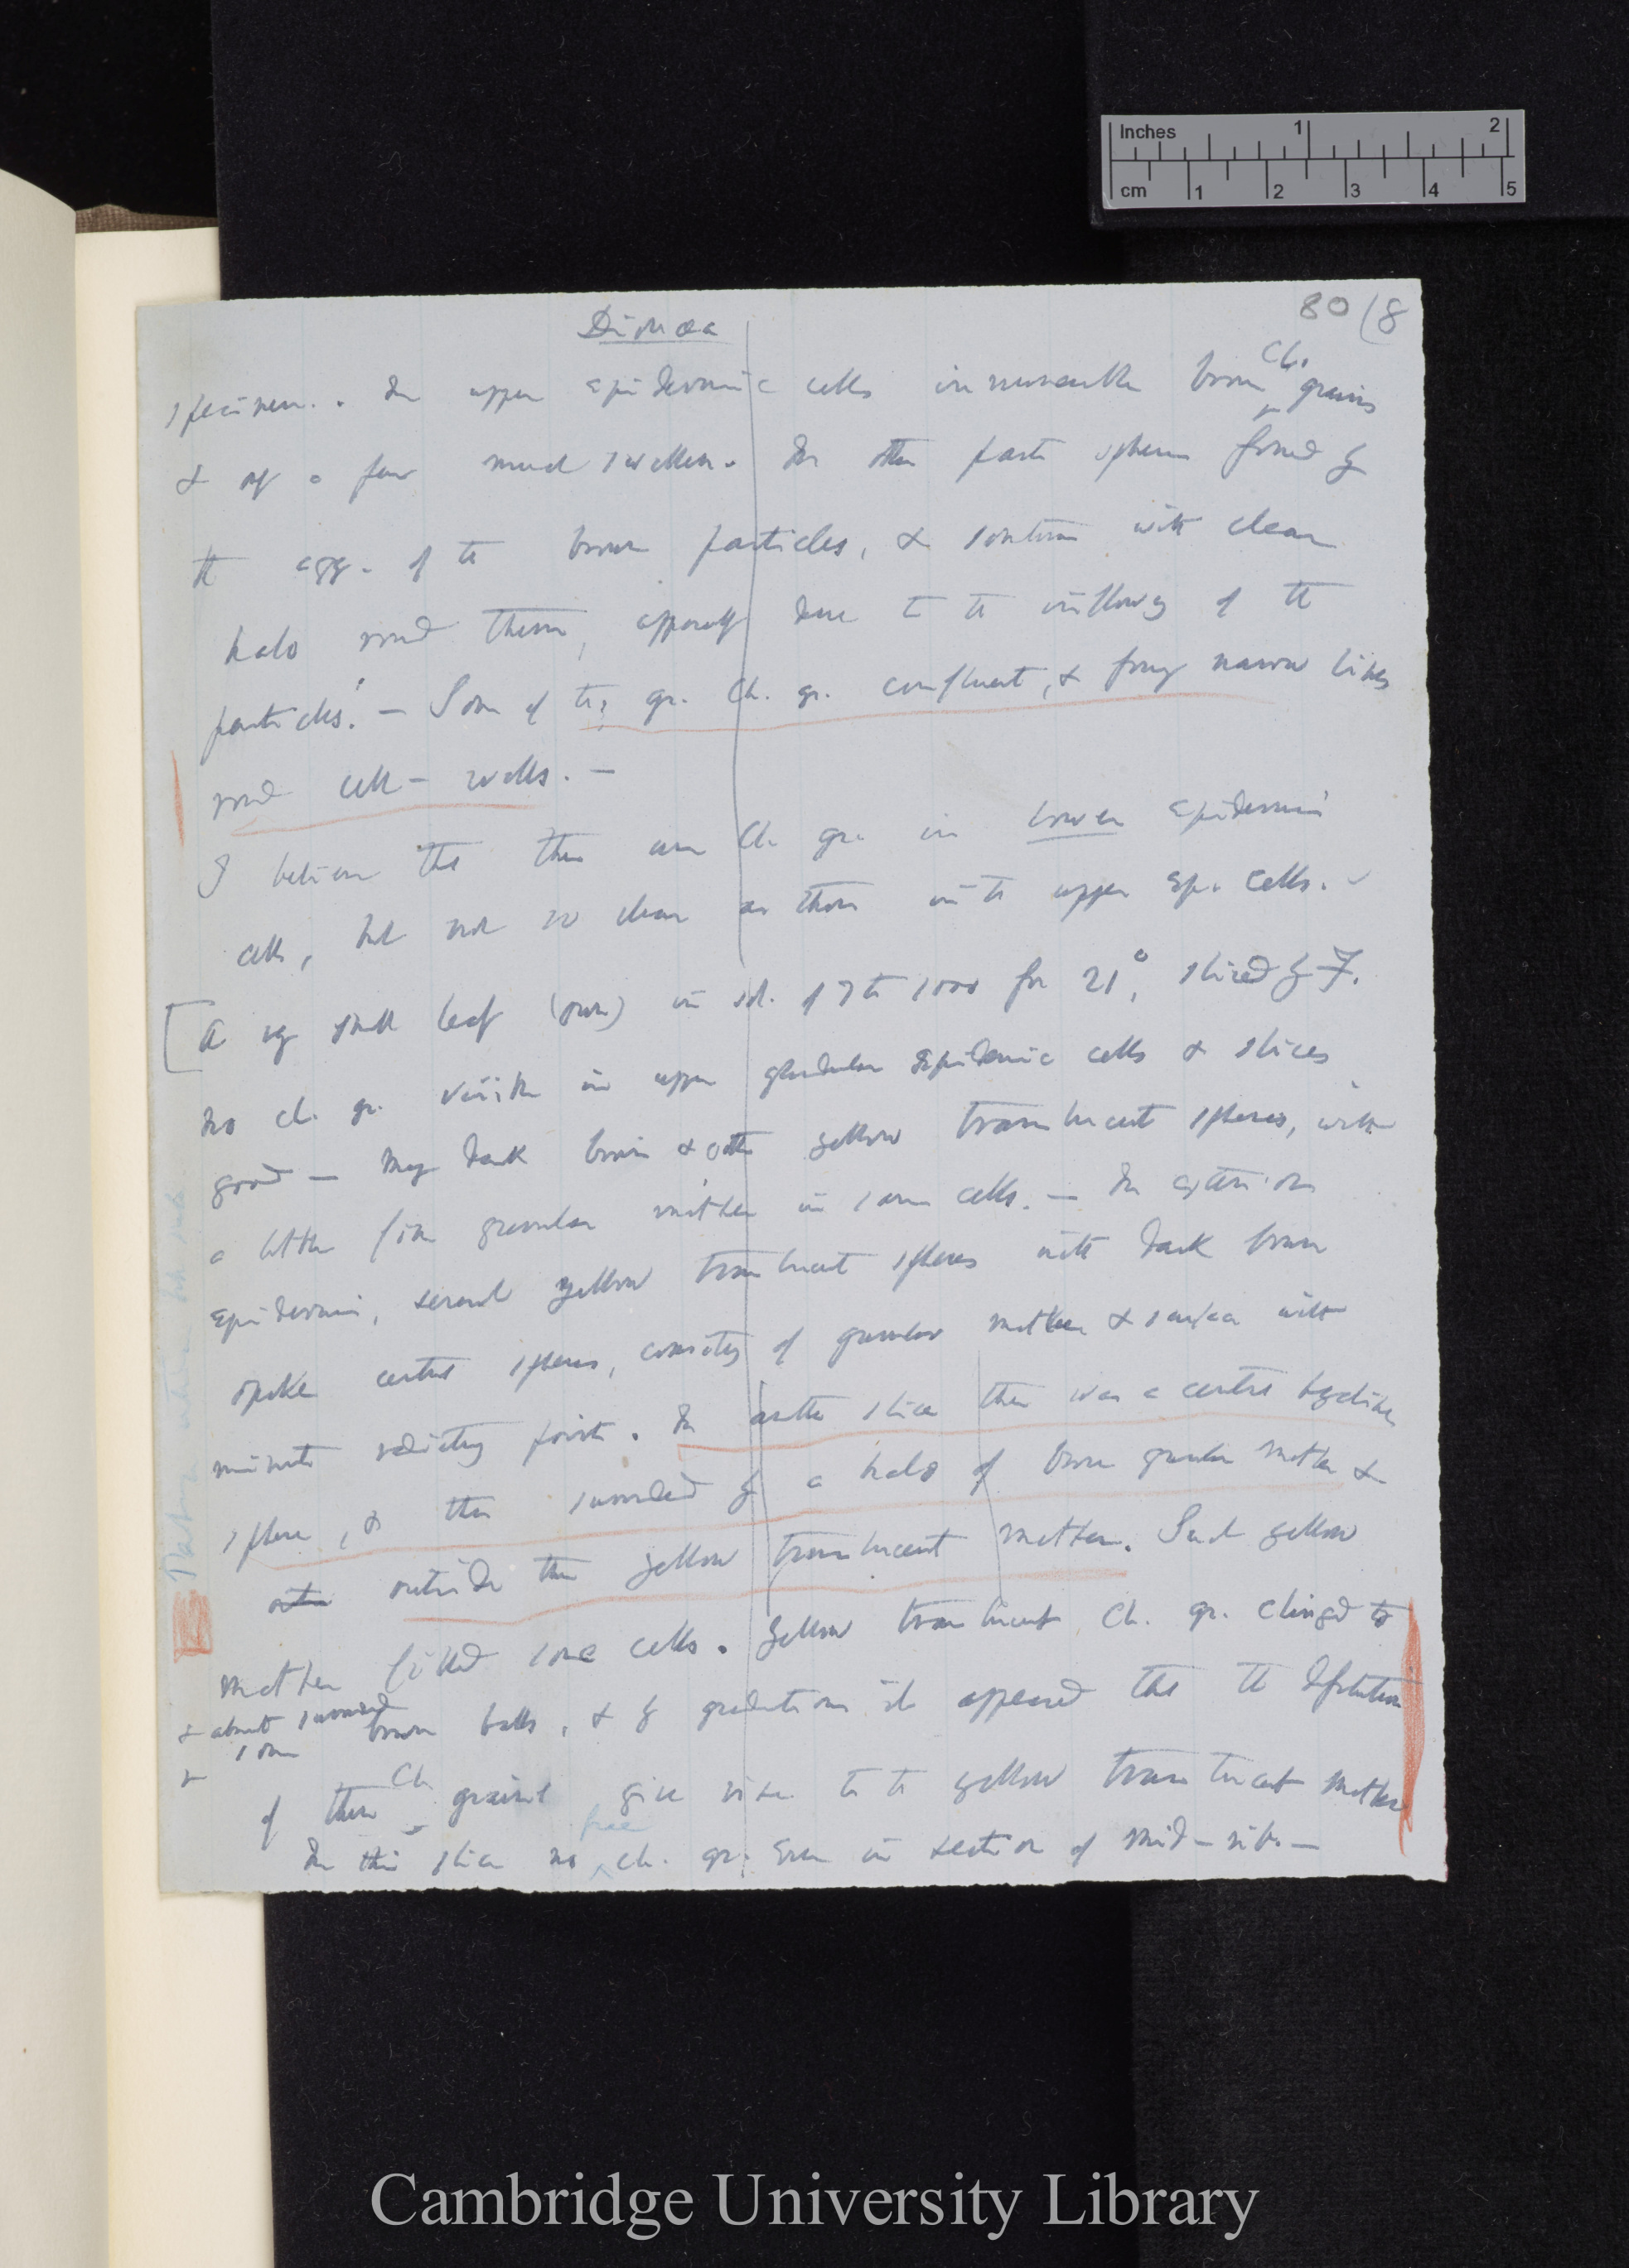 Inches 1 2
cm 1 2 3 4 5
80 (8
Dionæa
specimen. . In upper epidermic cells innumerable brown Ch. grains
& a few much swollen. In other parts spheres formed by
the agg. of the brown particles, & sometimes with clear
halo round them, apparently due to the inflowing of the
particles! — Some of the gr. Ch. gr. confluent, & forming narrow lines
round cell-walls. —
I believe that there are Ch. gr. in lower epidermic
cells, but not so clear as those in the upper epi. cells. —
[A very small leaf (pure) in sol. of 7 to 1000 for 21°, sliced by F.
No ch. gr. visible in upper glandular epidermic cells & slices
good — Many dark brown & other yellow translucent spheres, with
a little fine granular matter in same cells. — In exterior
epidermis, several yellow translucent spheres with dark brown
opake central spheres, consisting of granular matter & surface with
minute radiating points. In another slice there was a central hyaline
sphere, & then surrounded by a halo of brown granular matter &
outside this yellow translucent matter. Such yellow
matter filled some cells. Yellow translucent Ch. gr. clinged to
& almost surrounded some brown balls, & by gradations it appeared that the
of these Ch. grains give rise to the yellow translucent matter
In this slice no free ch. gr. Even in section of mid-rib. —
Cambridge University Library